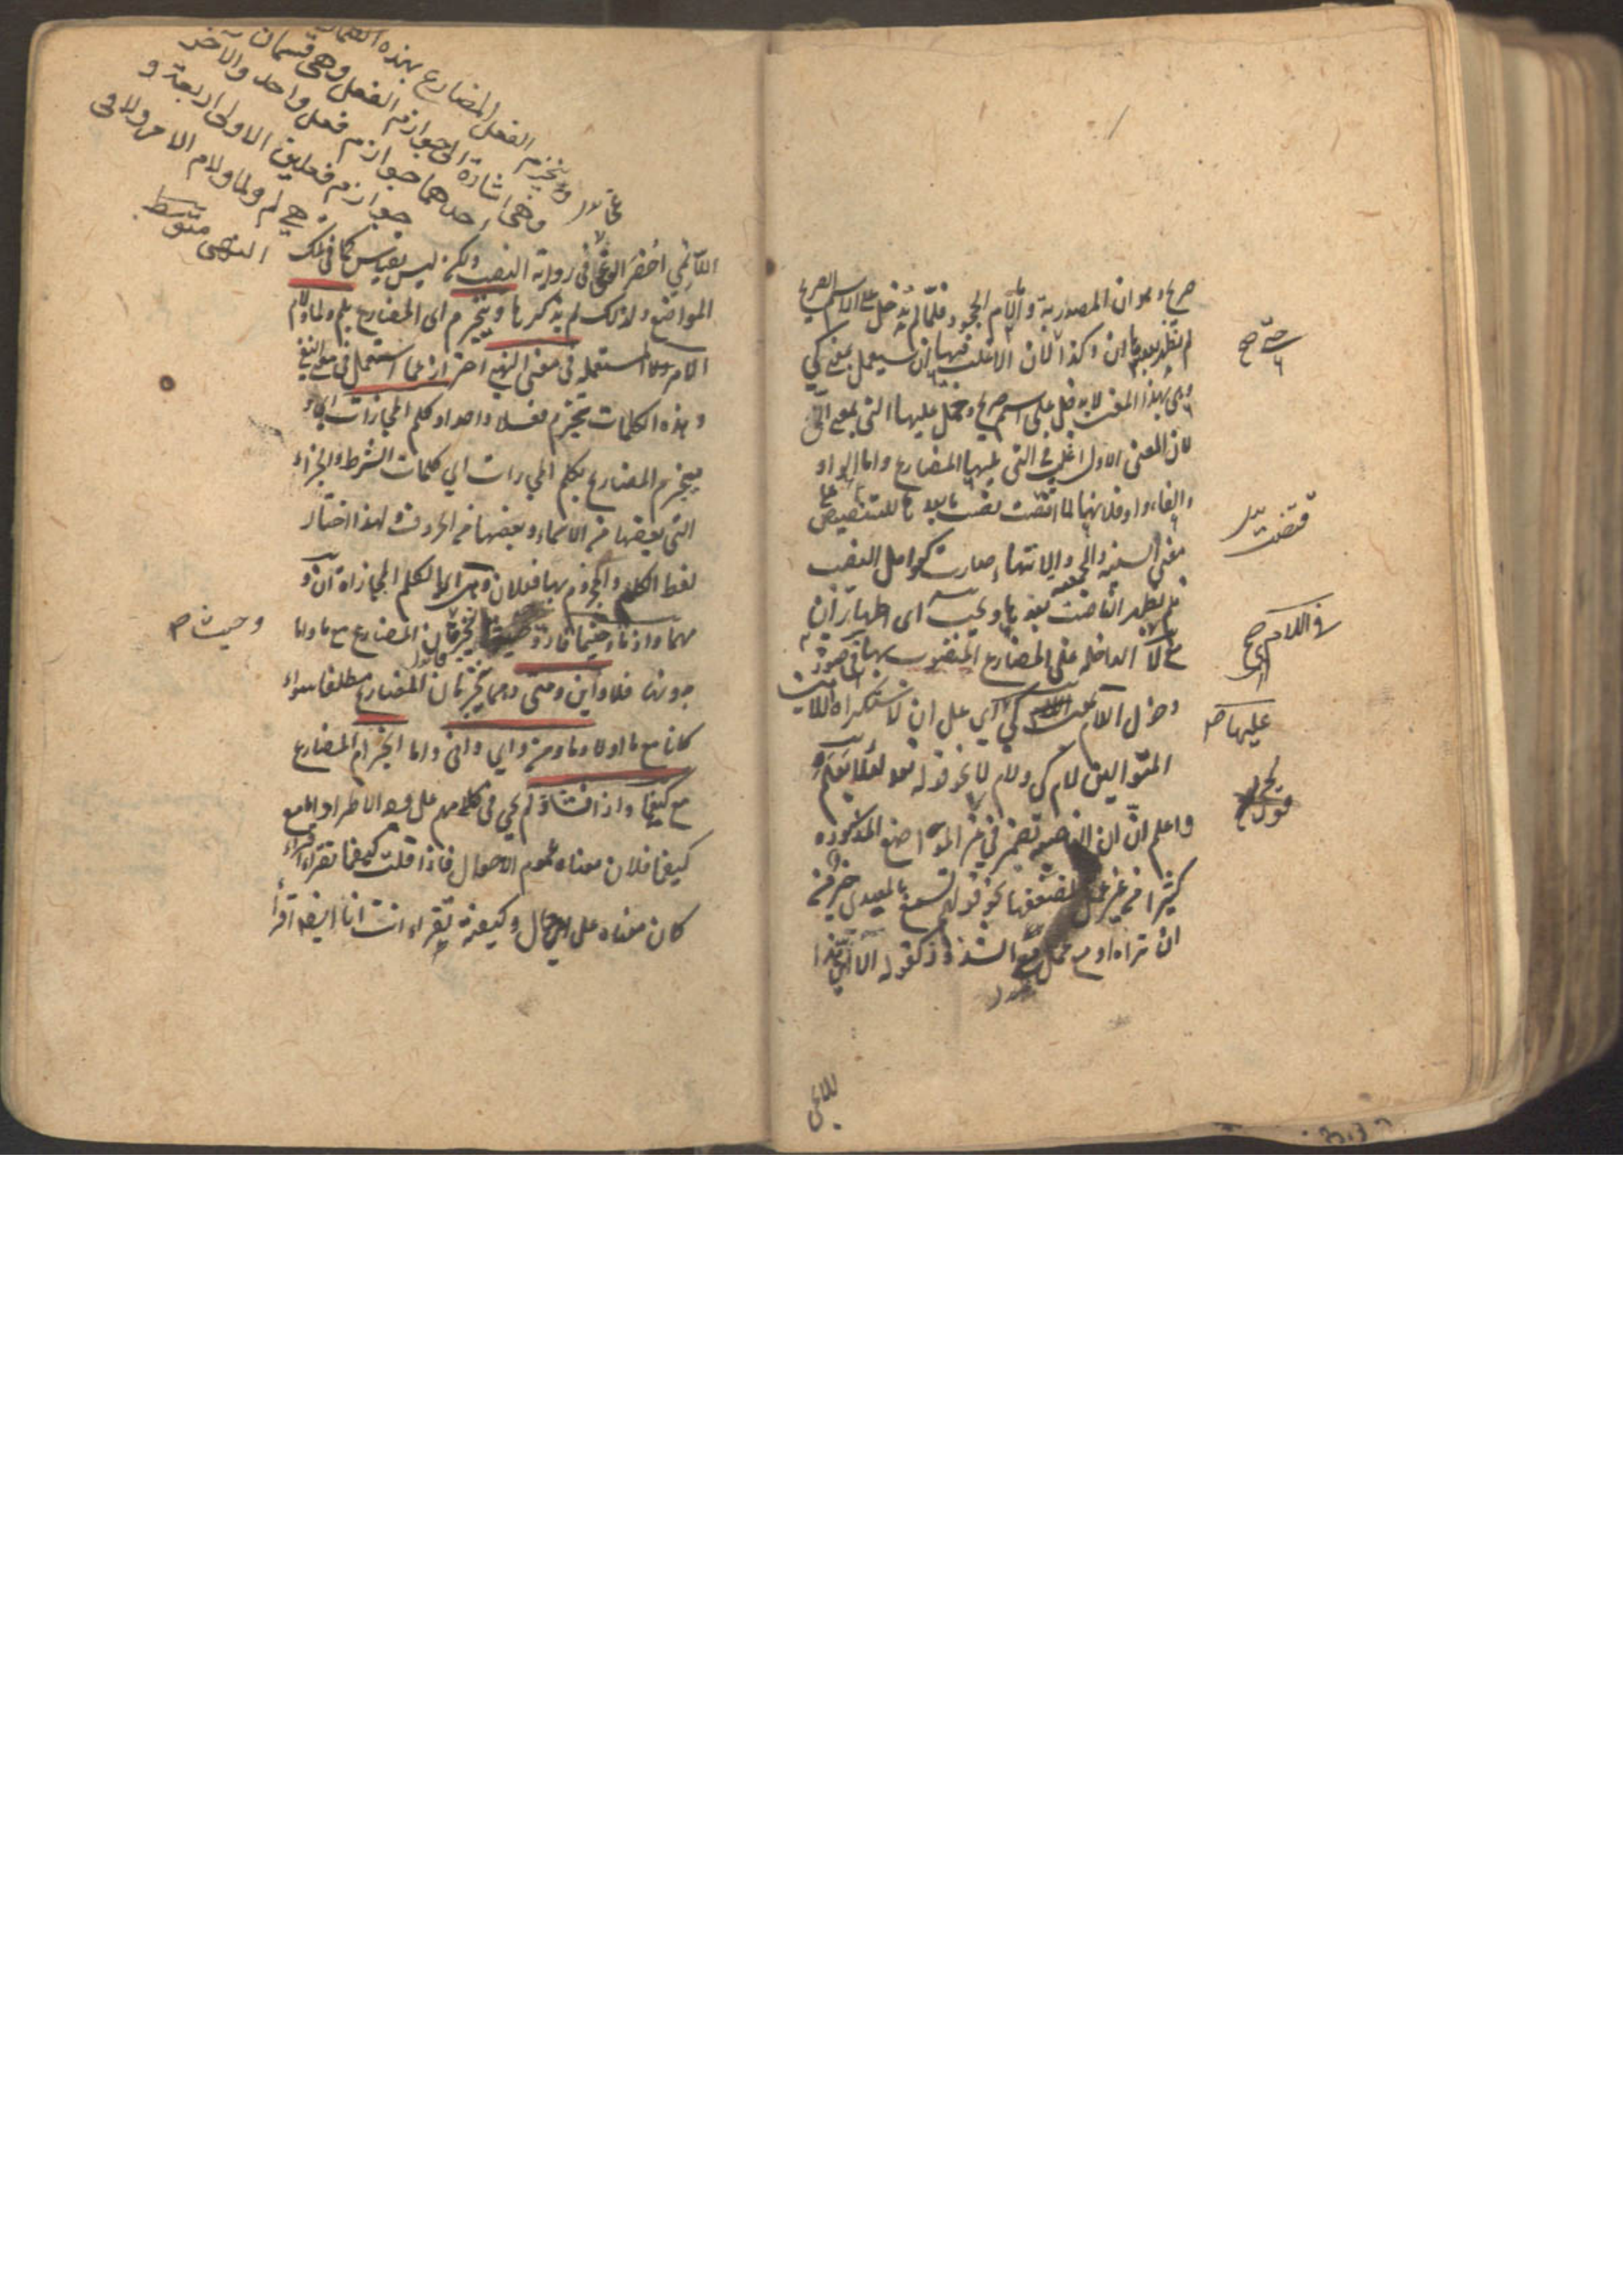 صريح وهو ان المصدرية و لام الجحود فلما لم تدخل على الاسم الصريح
لم تظهر بعدها ان وكذا لان الاغلب فيها ان تستعمل بمعنى كي
وهي بهذا المعنى لا تدخل على اسم صريح وحمل عليها التي بمعنى الى
لان المعنى الاول اغلب في التي يليها المضارع واما الواو
والفاء واو فلانها لما اقتضت نصب ما بعدها للتنصيص على
معنى السببية والجمعية والانتهاء صارت كعوامل النصب
فلم يظهر الناصب بعدها ويجب اى اظهار ان
مع لا الداخلة على المضارع المنصوب بها في صورة
دخول اللام بمعنى كي اي على ان لاستكراه اللامين
المتواليين لام كي ولام لا نحو قوله تعالى لئلا يعلم
واعلم ان ان الناصبة تضمر في غير المواضع المذكورة
كثيرا من غير عمل لضعفها نحو قولهم تسمع بالمعيدي خير من
ان تراه او مع عمل مع الشذوذ كقوله الا ايهذا
حتى صح
قتضت
في اللام صح
عليها صح
نحو
اللائمي
وينجزم الفعل المضارع بهذه
وهي اشارة الى جوازم الفعل وهي قسمان
احدهما جوازم فعل واحد والآخر
جوازم فعلين الاولى اربعة و
هي لم ولما ولام الامر ولا في
النهي متوسط
اللائمي احضر الوغى في رواية النصب ولكن ليس بقياس كما في تلك
المواضع ولذلك لم يذكرها وينجزم اى المضارع بلم ولما ولام
الامر ولا المستعملة في معنى النهي احترازا عما استعمل في معنى النفي
وهذه الكلمات تجزم فعلا واحدا وكلم المجازات اي
ينجزم المضارع بكلم المجازات اي كلمات الشرط والجزاء
التي بعضها من الاسماء وبعضها من الحروف ولهذا اختار
لفظ الكلم والمجزوم بها فعلان وهي اى الكلم المجازاة ان و
مهما واذما وحيثما فاذ وحيث يجزمان المضارع مع ما واما
بدونها فلا واين ومتى وهما تجزمان المضارع مطلقا سواء
كانا مع ما اولا وما ومن واي وانى واما انجزام المضارع
مع كيفما واذا فشاذ لم يجئ في كلامهم على وجه الاطراد اما مع
كيفما فلان معناه عموم الاحوال فاذا قلت كيفما تقرأ اقرأ
كان معناه على اي حال وكيفية تقرأ انت انا ايضا اقرأ
وحيث صح